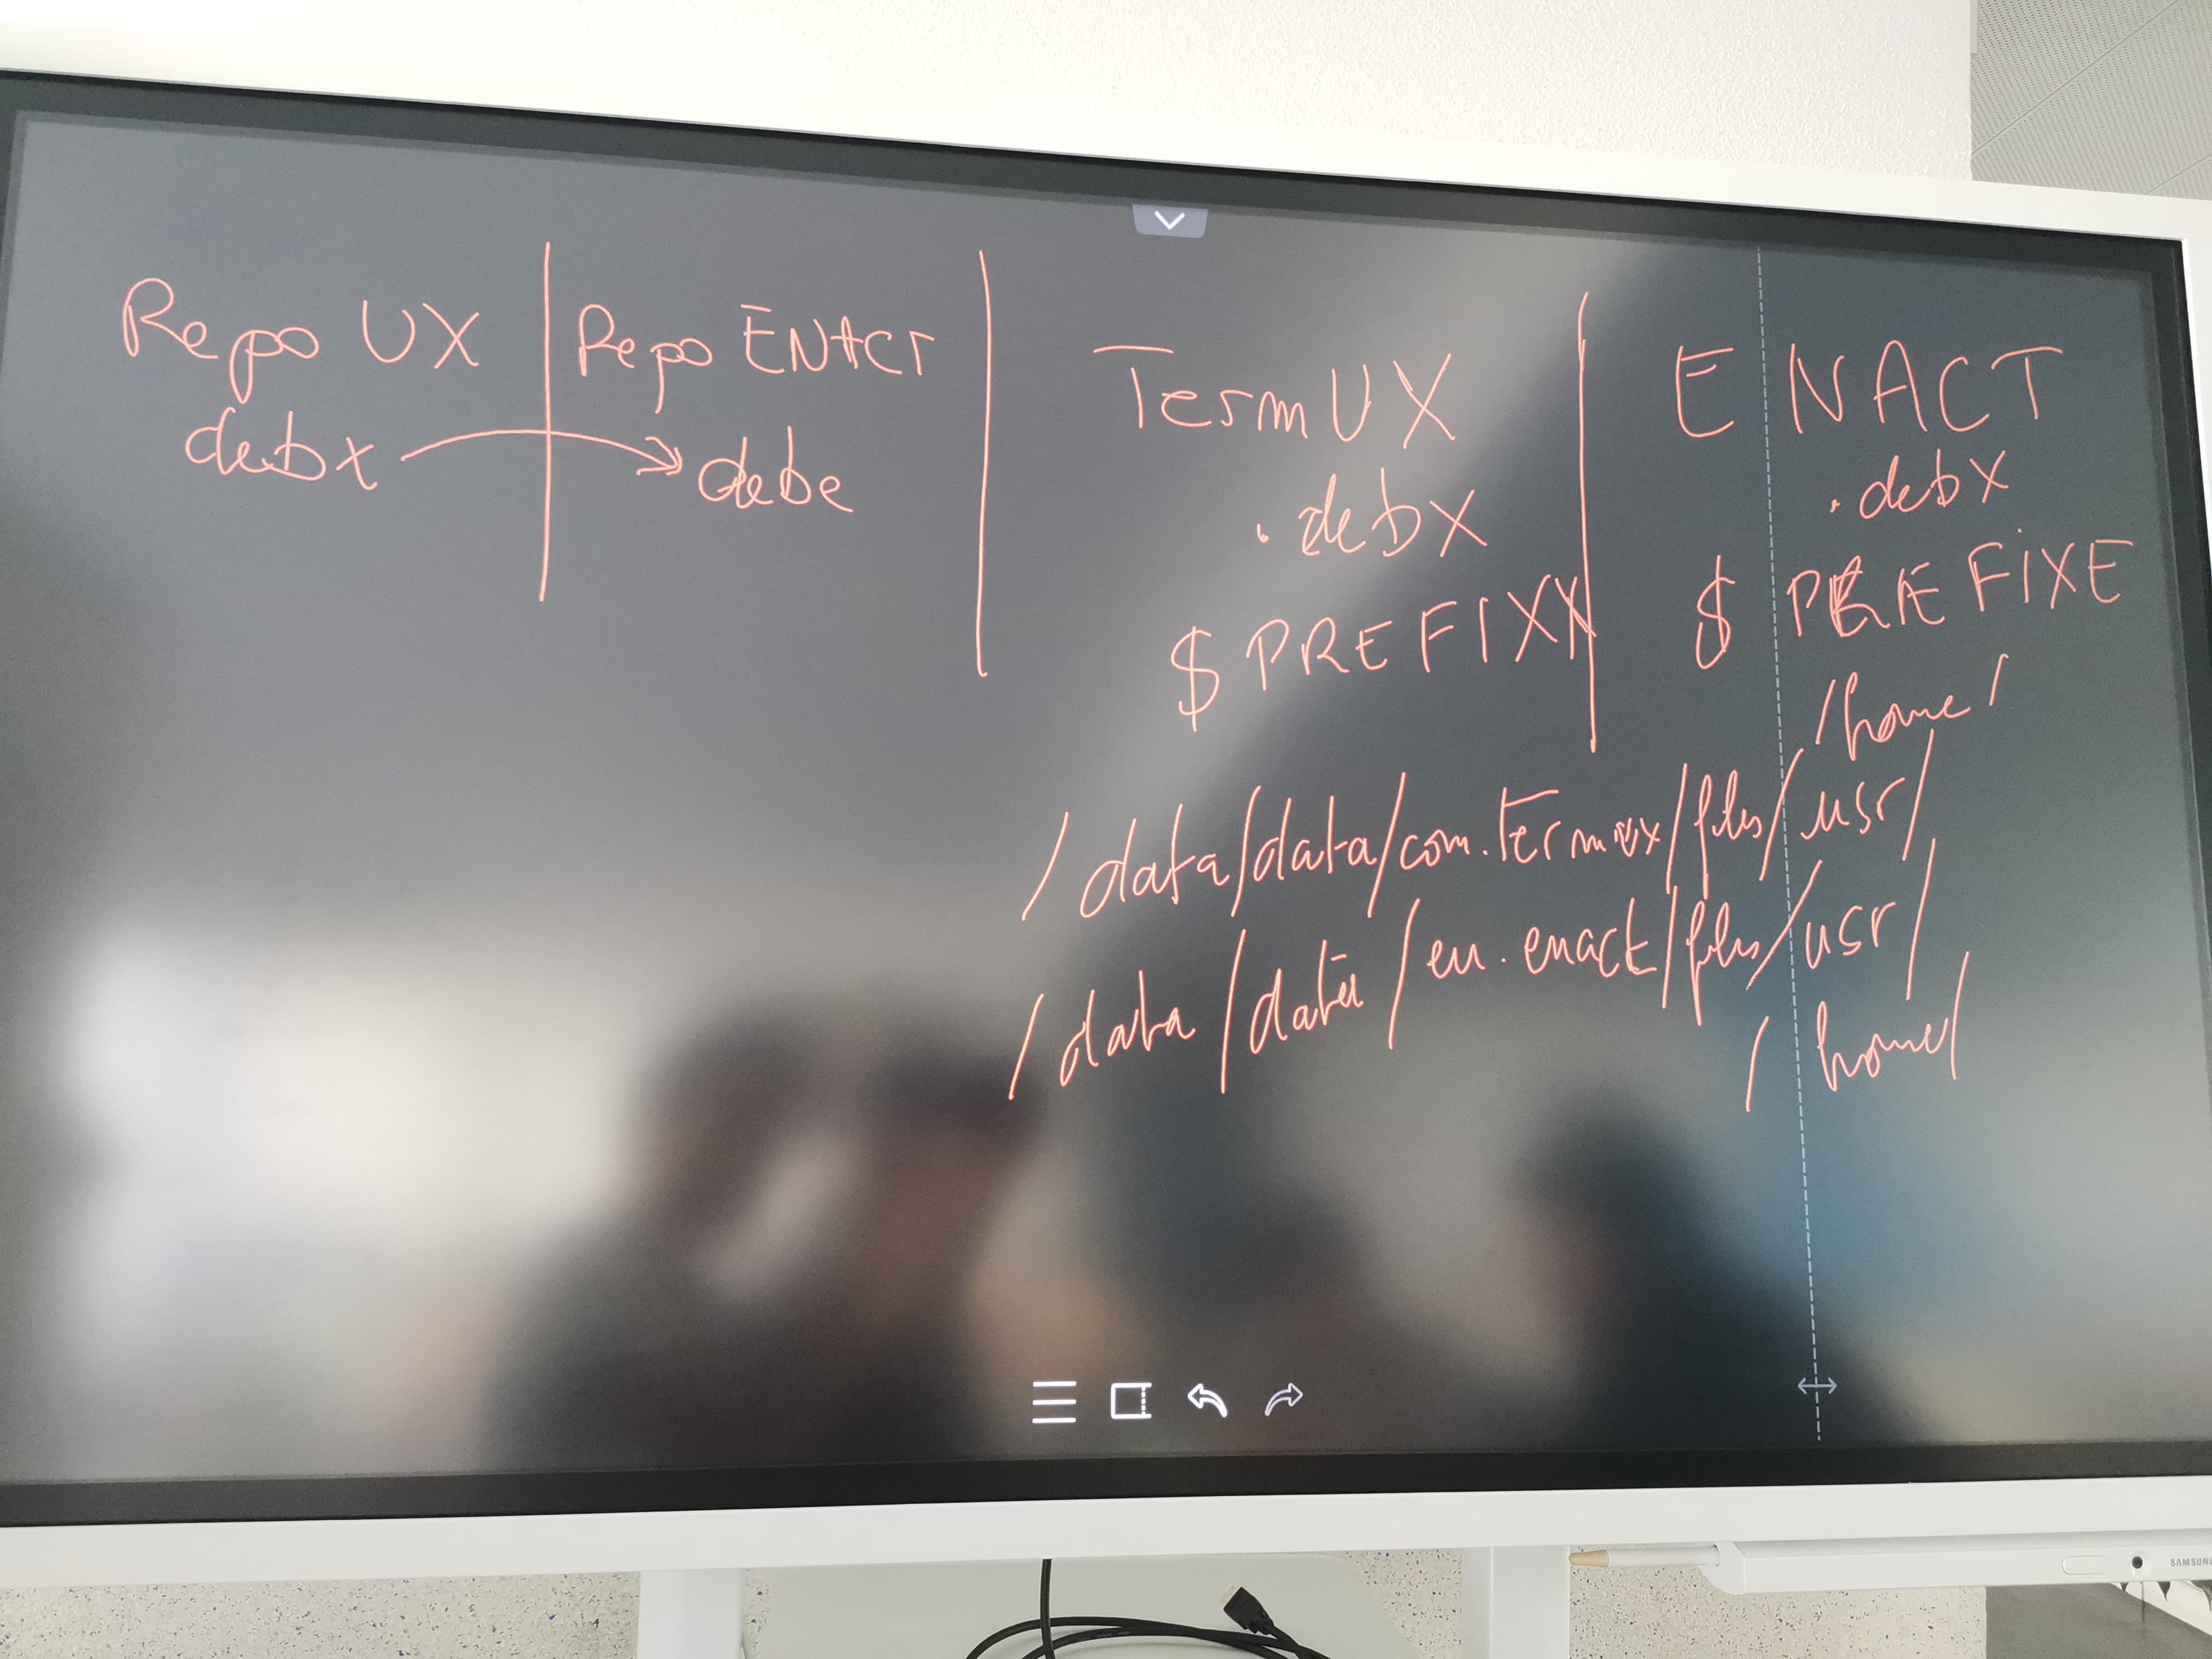 Repo UX
debx
Repo ENACT
debe
TermUX
.debx
$PREFIXX
ENACT
.debx
$PREFIXE
/home/
/data/data/com.termux/files/usr/
/data/data/eu.enact/files/usr/
/home/
SAMSUNG